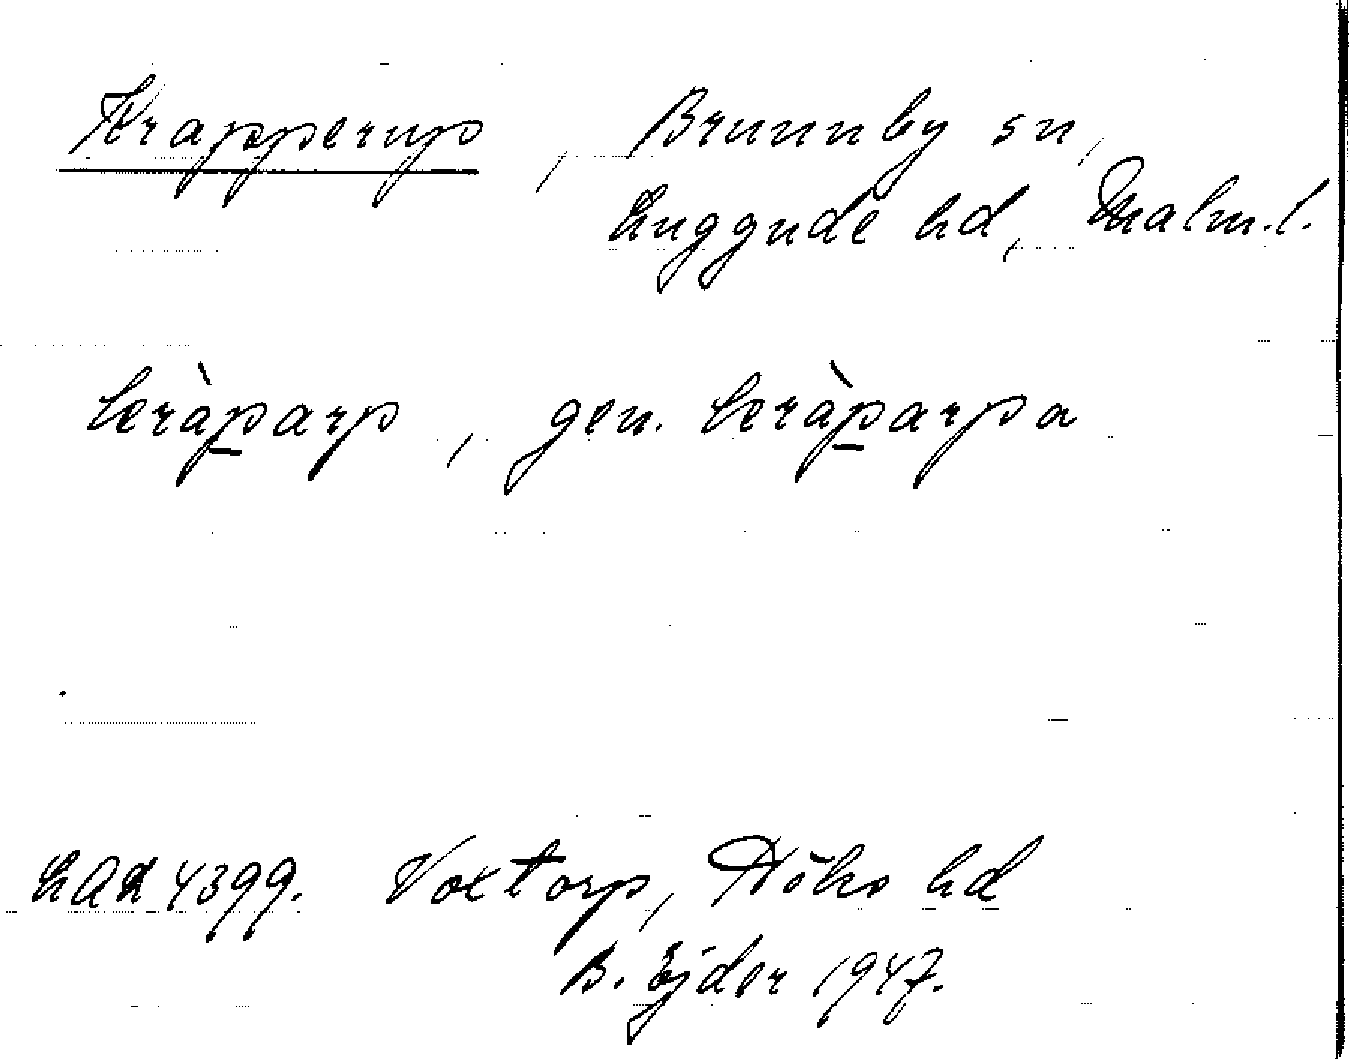 Krapperup, Brunnby sn,
Luggude hd, Malm.l.
kràparp, gen. kràparpa
LAL 4399. Voxtorp, Höks hd
B. Ejder 1947.